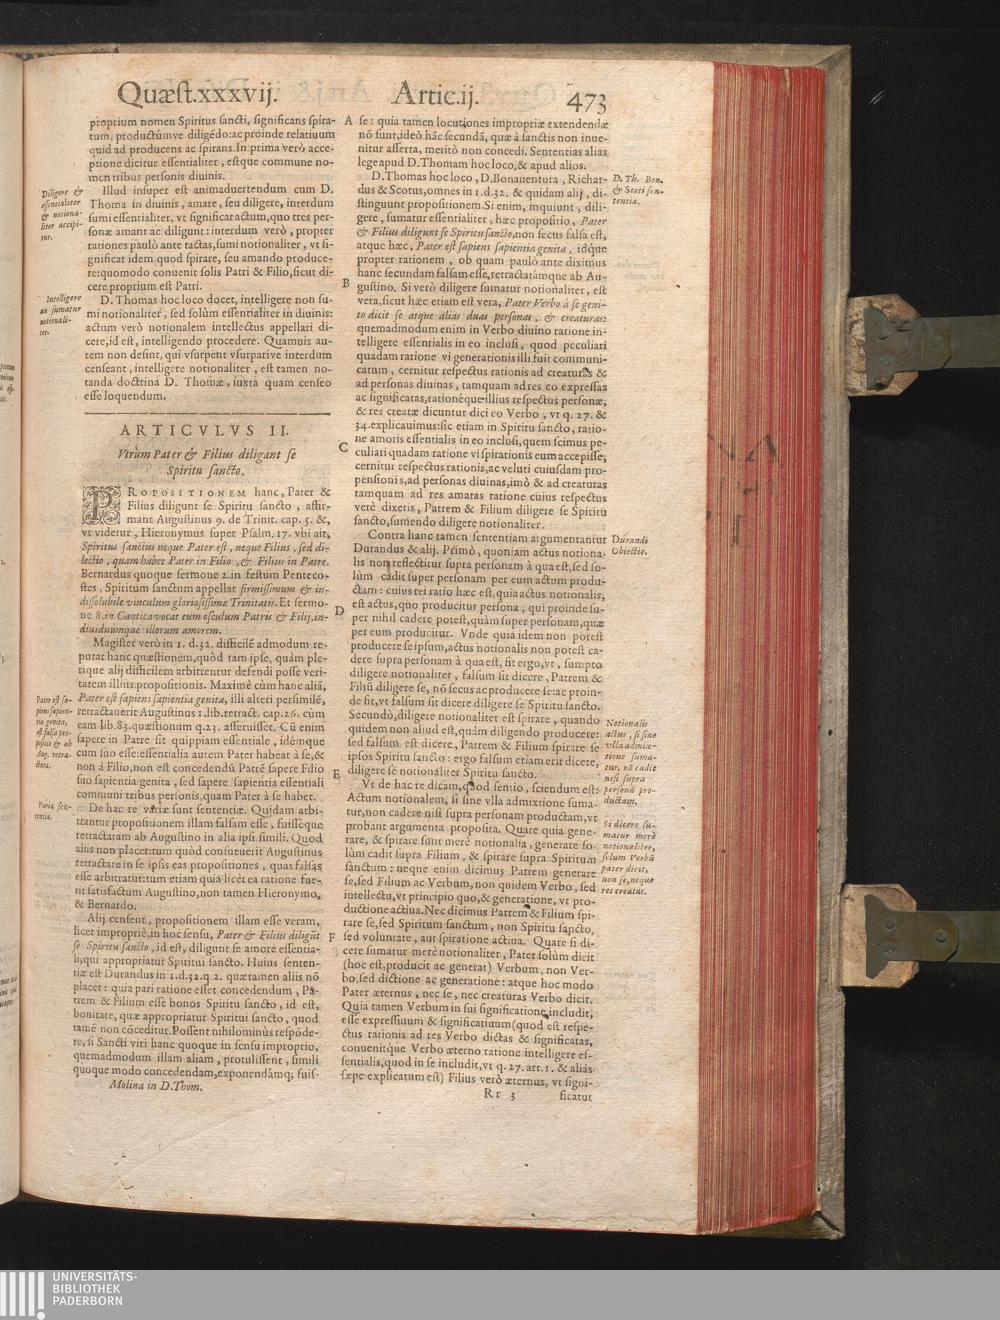 Quæst.xxxvij. Artic.ij. 473
proprium nomen Spiritus sancti, significans spira-
tum, productúmve diligẽdo: ac proinde relatiuum
quid ad producens ac spirans. In prima verò acce-
ptione dicitur essentialiter, estque commune no-
men tribus personis diuinis.
Illud insuper est animaduertendum cum D.
Thoma in diuinis, amare, seu diligere, interdum
sumi essentialiter, vt significat actum, quo tres per-
sonæ amant ac diligunt: interdum verò, propter
rationes paulò ante tactas, sumi notionaliter, vt si-
gnificat idem quod spirare, seu amando produce-
re: quomodo conuenit solis Patri & Filio, sicut di-
cere proprium est Patri.
D. Thomas hoc loco docet, intelligere non su-
mi notionaliter, sed solùm essentialiter in diuinis:
actum verò notionalem intellectus appellari di-
cere, id est, intelligendo procedere. Quamuis au-
tem non desint, qui vsurpent vsurpative interdum
censeant, intelligere notionaliter, est tamen no-
tanda doctrina D. Thomæ, iuxta quam censeo
esse loquendum.
Diligere &
essentialiter
& notiona-
liter accipi-
tur.
Intelligere
an sumatur
notionali-
ter.
ARTICVLVS II.
Vtrùm Pater & Filius diligant se
Spiritu sancto.
PROPOSITIONEM hanc, Pater &
Filius diligunt se Spiritu sancto, affir-
mant Augustinus 9. de Trinit. cap. 5. &,
vt videtur, Hieronymus super Psalm. 17. vbi ait,
Spiritus sanctus neque Pater est, neque Filius, sed di-
lectio, quam habet Pater in Filio, & Filius in Patre.
Bernardus quoque sermone 2. in festum Penteco-
stes, Spiritum sanctum appellat firmissimum & in-
dissolubile vinculum gloriosissimæ Trinitatis. Et sermo-
ne 8. in Cantica vocat eum osculum Patris & Filij, in-
diuiduúmque illorum amorem.
Magister verò in 1. d. 32. difficilẽ admodum re-
putat hanc quæstionem, quòd tam ipse, quàm ple-
rique alij difficilem arbitrentur defendi posse veri-
tatem illius propositionis. Maximè cùm hanc aliã,
Pater est sapiens sapientia genita, illi alteri persimilẽ,
retractauerit Augustinus 1. lib. retract. cap. 26. cùm
eam lib. 83. quæstionum q. 23. asseruisset. Cũ enim
sapere in Patre sit quippiam essentiale, idémque
cum suo esse: essentialia autem Pater habeat à se, &
non à Filio, non est concedendũ Patrẽ sapere Filio
suo sapientia genita, sed sapere sapientia essentiali
communi tribus personis, quam Pater à se habet.
De hac re variæ sunt sententiæ. Quidam arbi-
trantur propositionem illam falsam esse, fuisséque
retractatam ab Augustino in alia ipsi simili. Quod
aliis non placet: tum quòd consueuerit Augustinus
retractare in se ipsis eas propositiones, quas falsas
esse arbitratur: tum etiam quia licèt ea ratione fue-
rit satisfactum Augustino, non tamen Hieronymo,
& Bernardo.
Alij censent, propositionem illam esse veram,
licet impropriè, in hoc sensu, Pater & Filius diligũt
se Spiritu sancto, id est, diligunt se amore essentia-
li, qui appropriatur Spiritui sancto. Huius senten-
tiæ est Durandus in 1. d. 32. q. 2. quæ tamen aliis nõ
placet: quia pari ratione esset concedendum, Pa-
trem & Filium esse bonos Spiritu sancto, id est,
bonitate, quæ appropriatur Spiritui sancto, quod
tamẽ non cõceditur. Possent nihilominùs respõde-
re, si Sancti viri hanc quoque in sensu improprio,
quemadmodum illam aliam, protulissent, simili
quoque modo concedendam, exponendámq; fuis-
Molina in D. Thom.
Pater est sa-
piens sapien-
tia genita,
est falsa pro-
positio & ab
Aug. retra-
ctata.
Varia sen-
tentia.
A
B
C
D
E
F
se: quia tamen locutiones impropriæ extendendæ
nõ sunt, ideò hãc secundã, quæ à sanctis non inue-
nitur asserta, meritò non concedi. Sententias alias
lege apud D. Thomam hoc loco, & apud alios.
D. Thomas hoc loco, D. Bonauentura, Richar-
dus & Scotus, omnes in 1. d. 32. & quidam alij, di-
stinguunt propositionem. Si enim, inquiunt, dili-
gere, sumatur essentialiter, hæc propositio, Pater
& Filius diligunt se Spiritu sancto, non secus falsa est,
atque hæc, Pater est sapiens sapientia genita, idque
propter rationem, ob quam paulò ante diximus
hanc secundam falsam esse, retractatámque ab Au-
gustino. Si verò diligere sumatur notionaliter, est
vera, sicut hæc etiam est vera, Pater Verbo à se geni-
to dicit se atque alias duas personas, & creaturas:
quemadmodum enim in Verbo diuino ratione in-
telligere essentialis in eo inclusi, quod peculiari
quadam ratione vi generationis illi fuit communi-
catum, cernitur respectus rationis ad creaturas &
ad personas diuinas, tamquam ad res eo expressas
ac significatas, rationéque illius respectus personæ,
& res creatæ dicuntur dici eo Verbo, vt q. 27. &
34. explicauimus: sic etiam in Spiritu sancto, ratio-
ne amoris essentialis in eo inclusi, quem scimus pe-
culiari quadam ratione vi spirationis eum accepisse,
cernitur respectus rationis, ac veluti cuiusdam pro-
pensionis, ad personas diuinas, imò & ad creaturas
tamquam ad res amatas ratione cuius respectus
verè dixeris, Patrem & Filium diligere se Spiritu
sancto, sumendo diligere notionaliter.
Contra hanc tamen sententiam argumentantur
Durandus & alij. Primò, quoniam actus notiona-
lis non reflectitur supra personam à qua est, sed so-
lùm cadit super personam per eum actum produ-
ctam: cuius rei ratio hæc est, quia actus notionalis,
est actus, quo producitur persona, qui proinde su-
per nihil cadere potest, quàm super personam, quæ
per eum producitur. Vnde quia idem non potest
producere se ipsum, actus notionalis non potest ca-
dere supra personam à qua est, sit ergo, vt, sumpto
diligere notionaliter, falsum sit dicere, Patrem &
Filiũ diligere se, nõ secus ac producere se: ac proin-
de sit, vt falsum sit dicere diligere se Spiritu sancto.
Secundò, diligere notionaliter est spirare, quando
quidem non aliud est, quàm diligendo producere:
sed falsum est dicere, Patrem & Filium spirare se
ipsos Spiritu sancto: ergo falsum etiam erit dicere,
diligere se notionaliter Spiritu sancto.
Vt de hac re dicam, quod sentio, sciendum est:
Actum notionalem, si sine vlla admixtione suma-
tur, non cadere nisi supra personam productam, vt
probant argumenta proposita. Quare quia gene-
rare, & spirare sunt merè notionalia, generare so-
lùm cadit supra Filium, & spirare supra Spiritum
sanctum: neque enim dicimus Patrem generare
se, sed Filium ac Verbum, non quidem Verbo, sed
intellectu, vt principio quo, & generatione, vt pro-
ductione actiua. Nec dicimus Patrem & Filium spi-
rare se, sed Spiritum sanctum, non Spiritu sancto,
sed voluntate, aut spiratione actiua. Quare si di-
cere sumatur merè notionaliter, Pater solùm dicit
(hoc est, producit ac generat) Verbum, non Ver-
bo, sed dictione ac generatione: atque hoc modo
Pater æternus, nec se, nec creaturas Verbo dicit.
Quia tamen Verbum in sui significatione includit,
esse expressiuum & significatiuum (quod est respe-
ctus rationis ad res Verbo dictas & significatas,
conuenitque Verbo æterno ratione intelligere es-
sentialis, quod in se includit, vt q. 27. art. 1. & aliàs
sæpe explicatum est) Filius verò æternus, vt signi-
Rr 3 ficatur
D. Th. Bon.
& Scoti sen-
tentia.
Durandi
Obiectio.
Notionalis
actus, si sine
vlla admix-
tione suma-
tur, nõ cadit
nisi supra
personã pro-
ductam.
Si dicere su-
matur merè
notionaliter,
solum Verbũ
pater dicit,
non se, neque
res creatas.
UNIVERSITÄTS-
BIBLIOTHEK
PADERBORN